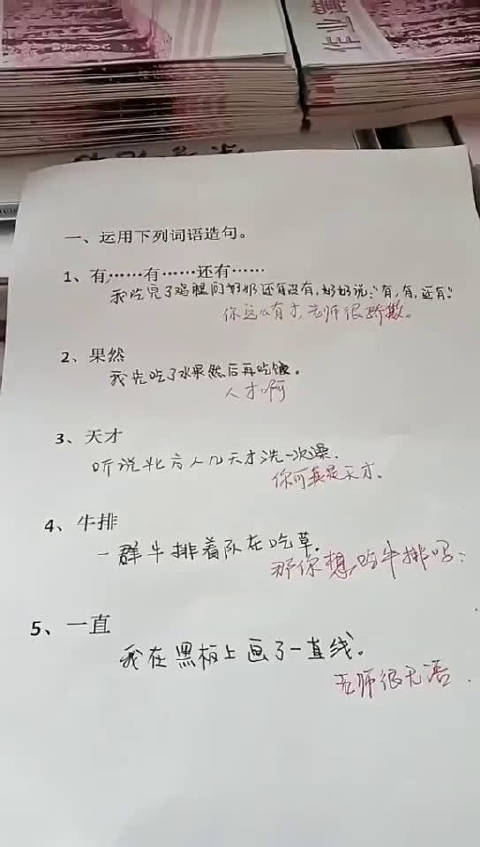 作业
一、运用下列词语造句。
1、有……有……还有……
我吃完了鸡腿问奶奶还有没有,奶奶说:"有,有,还有。"
你这么有才,老师很骄傲。
2、果然
我先吃了水果然后再吃饭。
人才啊
3、天才
听说北方人几天才洗一次澡.
你可真是天才.
4、牛排
一群牛排着队在吃草.
那你想吃牛排吗?
5、一直
我在黑板上画了一直线.
老师很无语.